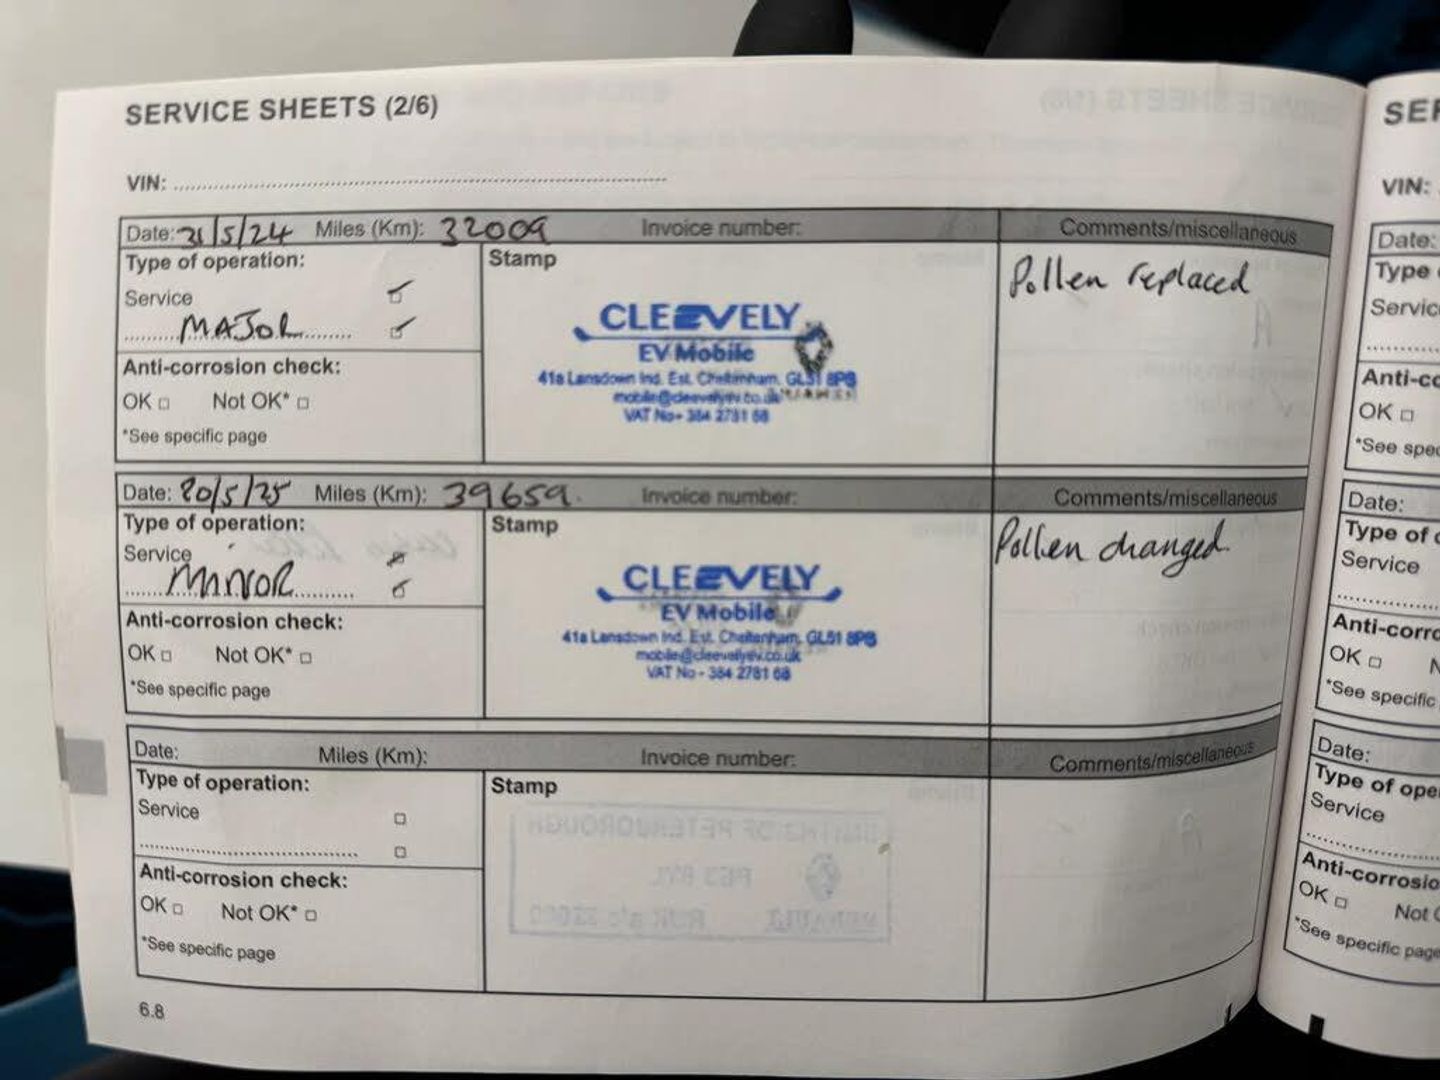 SERVICE SHEETS (2/6)
VIN:
Date: 31/5/24 Miles (Km): 32009 Invoice number: Comments/miscellaneous
Type of operation:
Service
MAJOR
Anti-corrosion check:
OK Not OK*
*See specific page
Stamp
CLEEVELY
EV Mobile
41a Lansdown Ind. Est. Cheltenham, GL51 8PB
mobile@cleevelyev.co.uk
VAT No - 384 2781 68
Pollen replaced
Date: 20/5/25 Miles (Km): 39659. Invoice number: Comments/miscellaneous
Type of operation:
Service
MINOR
Anti-corrosion check:
OK Not OK*
*See specific page
Stamp
CLEEVELY
EV Mobile
41a Lansdown Ind. Est. Cheltenham, GL51 8PB
mobile@cleevelyev.co.uk
VAT No - 384 2781 68
Pollen changed.
Date: Miles (Km): Invoice number: Comments/miscellaneous
Type of operation:
Service
Anti-corrosion check:
OK Not OK*
*See specific page
Stamp
6.8
SER
VIN:
Date:
Type
Servic
Anti-co
OK
*See spec
Date:
Type of o
Service
Anti-corro
OK N
*See specific
Date:
Type of ope
Service
Anti-corrosio
OK Not O
*See specific page